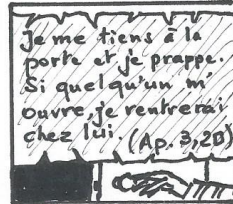 Je me tiens à la
porte et je prappe.
Si quelqu'un m'
ouvre, je rentrerai
chez lui. (Ap. 3,20)